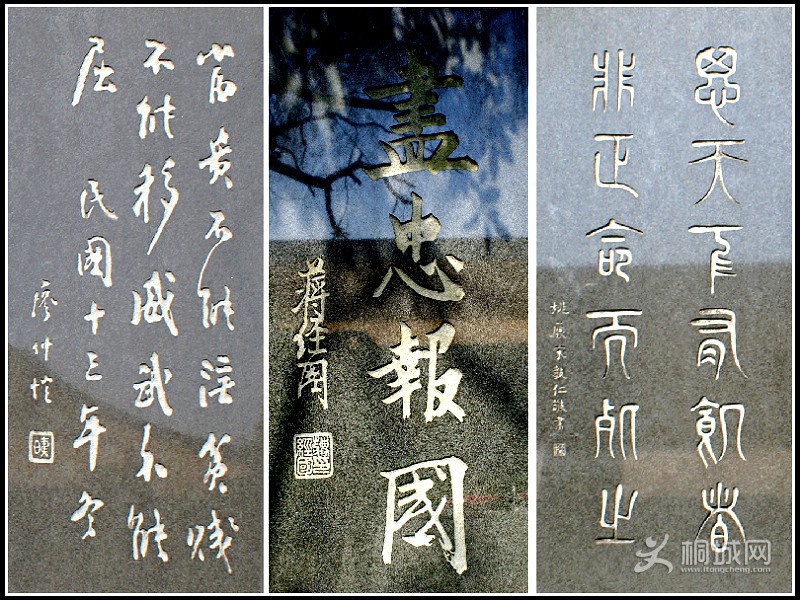 富貴不能淫貧賤
不能移威武不能
屈 民國十三年冬
廖仲愷
盡忠報國
蔣經國
思天下有飢者
非正命而死之
桃源宋教仁敬書
桐城网
www.itongcheng.com